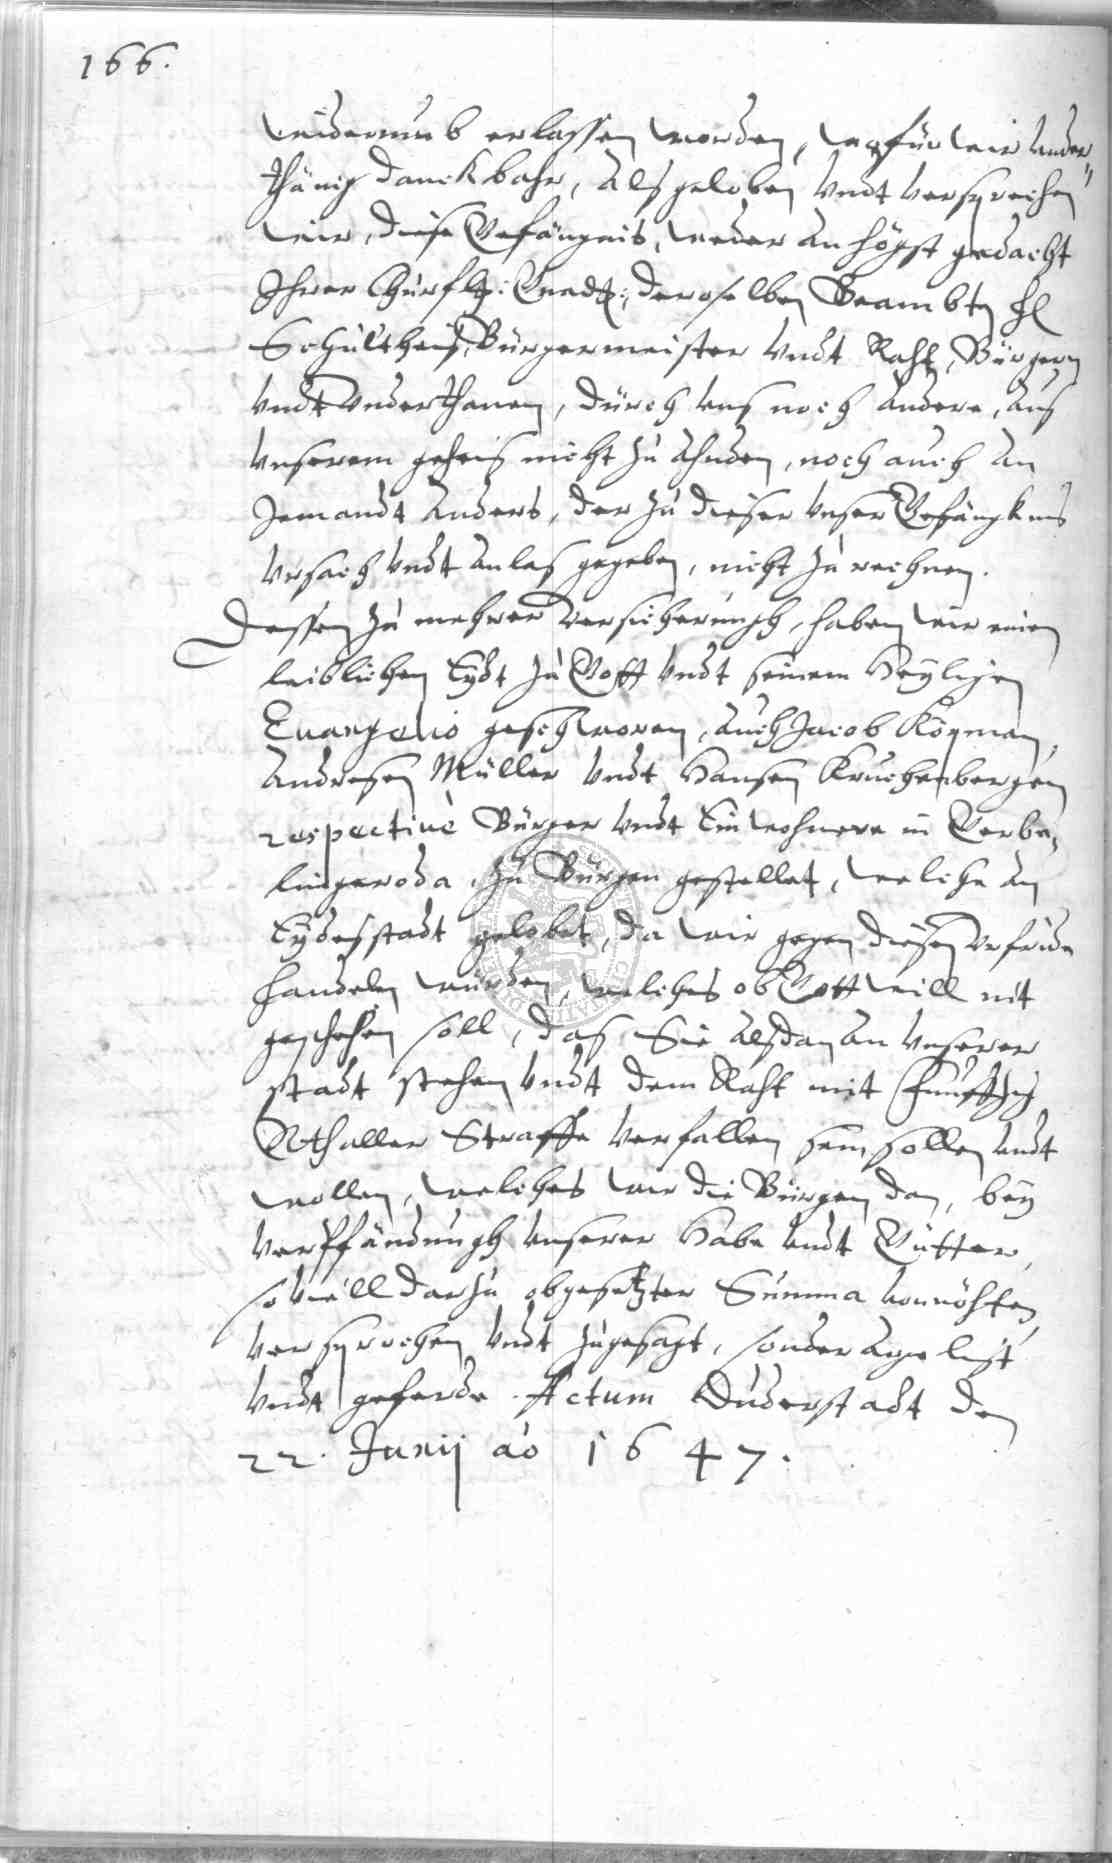 166.
widerumb erlassen worden, wofür wir under„
thänig danckbahr, Als geloben Vndt Versprechen
wir, diese Gefängnis, weder an högst gedacht
Ihrer Churfl: Gnad:, deroselben Beambtn
Schultheis, Bürgermeister Vndt Raht, Bürgern
Vndt Vnderthanen, durch uns noch andere, aus
Vnserem geheis nicht zu ahnden, noch auch an
Jemandt anders, der zu dieser Vnser Gefängknis
Vrsach Vndt anlas gegeben, nicht zu rechnen.
Dessen zu mehrer Versicherungh, haben wir einen
leiblichen Eydt zu Gott Vndt seinem Heyligen
Euangelio geschworen, auch Jacob Köpman,
Andresen Müller Vndt Hansen Kruchenbergen
respectiuè Bürger Vndt Einwohnere in Gerbe,
lingeroda, zu Bürgen gestellet, welche an
Eydesstadt gelobet, da wir gegen diesen Vrfriden
handelen würden, welches ob Gott will nit
geschehen soll, das Sie alsdan an Vnserer
stadt stehen Vndt dem Raht mit Funfftzig
Rthaller Straffe Verfallen sein sollen undt
wollen, welches wir die Bürgen dan, bey
Verpfändungh unserer Habe undt Gütter,
so viell darzu obgesetzter Summa vonnöhten,
Versprochen Vndt zugesagt, sonder argelist
Vndt geferde. Actum Duderstadt den
22. Junij ao 1647.